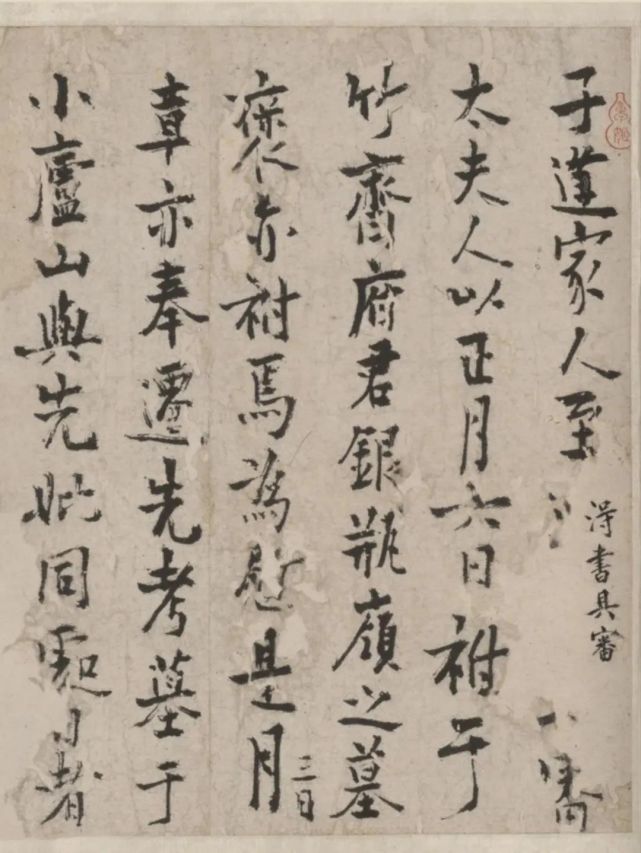 子達家人至
得書具審
太夫人以正月六日祔于
竹齋府君銀瓶嶺之墓
褒亦祔焉為慰是月三日
章亦奉遷先考墓于
小廬山與先妣同處日者